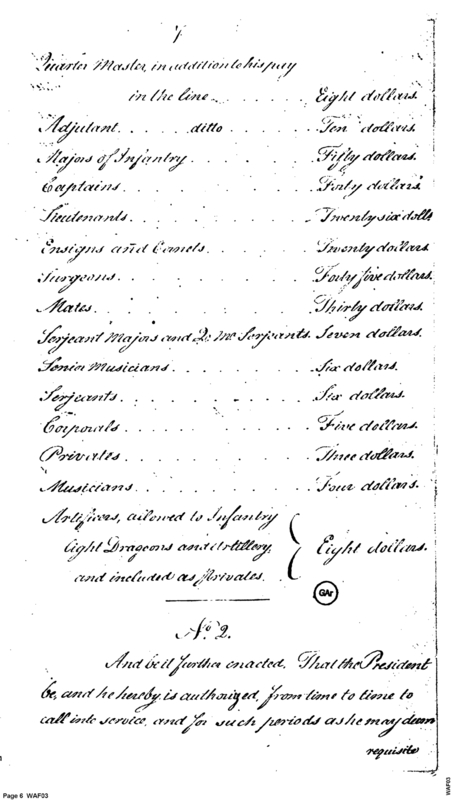 7
Quarter Master, in addition to his pay
in the line . . . . . . Eight dollars.
Adjutant . . . . . ditto . . . . . Ten dollars.
Majors of Infantry . . . . . . Fifty dollars.
Captains . . . . . . . . . Forty dollars.
Lieutenants . . . . . . . . Twenty six dolls
Ensigns and Cornets . . . . . . Twenty dollars
Surgeons . . . . . . . . . Forty five dollars.
Mates . . . . . . . . . . Thirty dollars.
Serjeant Majors and Qr. Mr. Serjeants. Seven dollars.
Senior Musicians . . . . . . . Six dollars.
Serjeants . . . . . . . . . Six dollars.
Corporals . . . . . . . . . Five dollars.
Privates . . . . . . . . . Three dollars.
Musicians . . . . . . . . . Four dollars.
Artificers, allowed to Infantry
Light Dragoons and Artillery, Eight dollars.
and included as Privates.
GAr
No. 2.
And be it further enacted, That the President
be, and he hereby is authorized, from time to time to
call into service, and for such periods as he may deem
requisite
Page 6 WAF03
WAF03